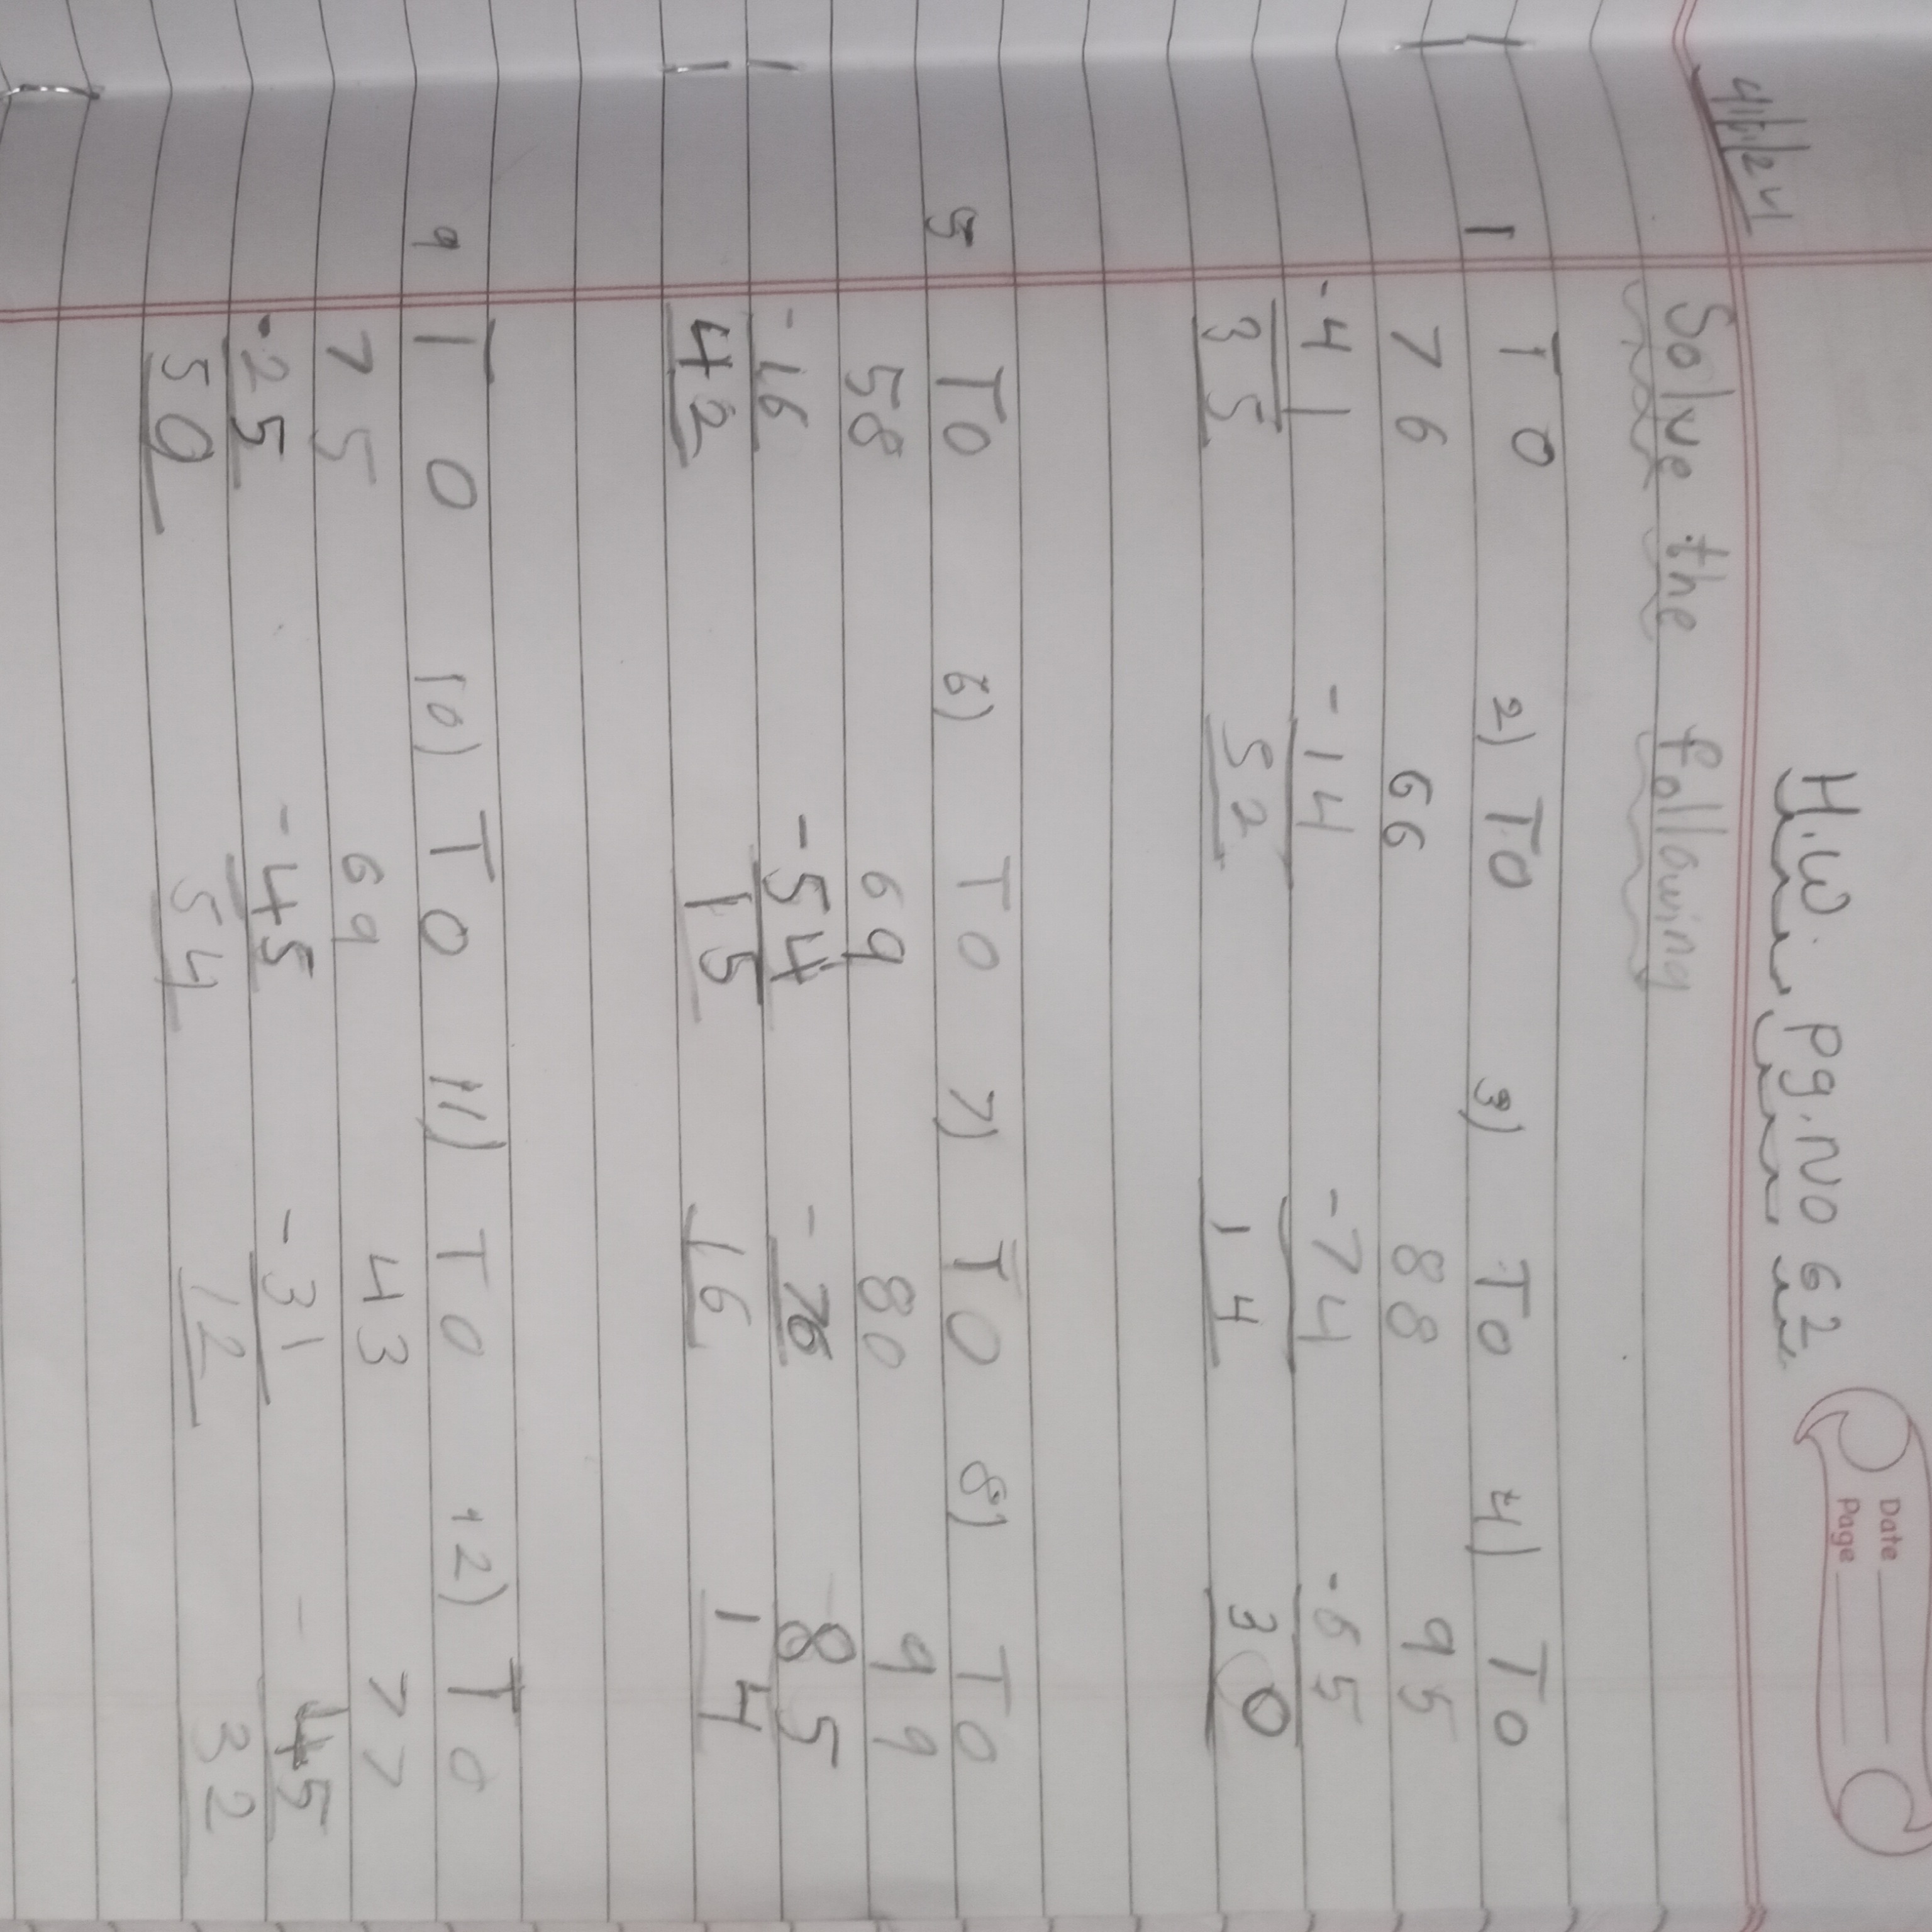 H.W. Pg.No 62
Date
Page
4/11/24
Solve the following
1 T O 2) T O 3) T O 4) T O
76 66 88 95
-41 -14 -74 -65
35 52 14 30
5 T O 6) T O 7) T O 8) T O
58 69 80 99
-16 -54 - 85
42 15 16 14
9 T O 10) T O 11) T O 12) T O
75 69 43 77
-25 -45 -31 -45
50 54 12 32